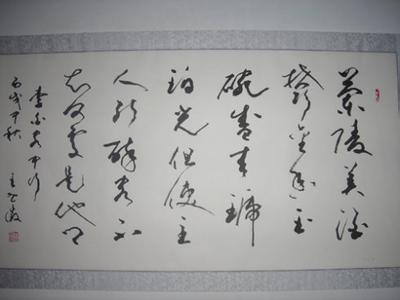 蘭陵美酒
鬱金香玉
碗盛來琥
珀光但使主
人能醉客不
知何處是他鄉
李白客中行
丙戌中秋